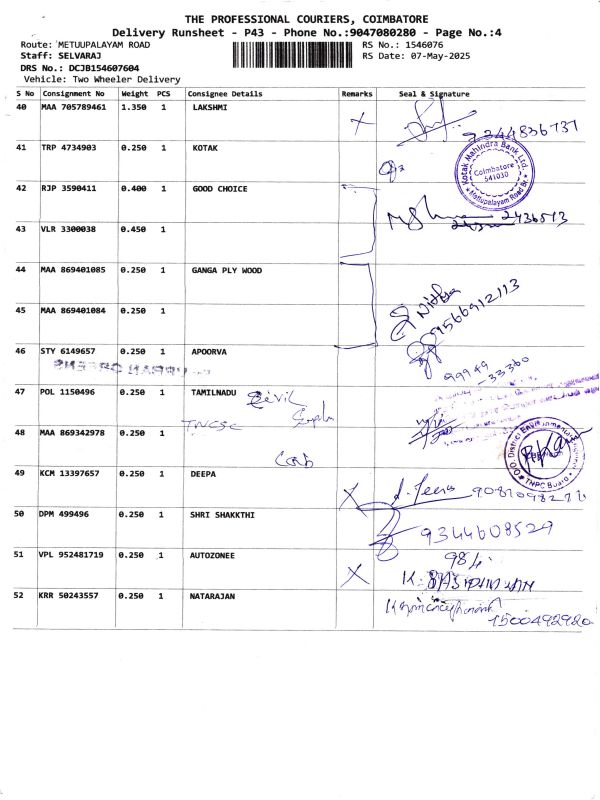 THE PROFESSIONAL COURIERS, COIMBATORE
Delivery Runsheet - P43 - Phone No.:9047080280 - Page No.:4
Route: METUUPALAYAM ROAD RS No.: 1546076
Staff: SELVARAJ RS Date: 07-May-2025
DRS No.: DCJB154607604
Vehicle: Two Wheeler Delivery
S No Consignment No Weight PCS Consignee Details Remarks Seal & Signature
40 MAA 705789461 1.350 1 LAKSHMI
41 TRP 4734903 0.250 1 KOTAK
Kotak Mahindra Bank Ltd.
Coimbatore
641030
Mettupalayam Road Br.
42 RJP 3590411 0.400 1 GOOD CHOICE
2436513
43 VLR 3300038 0.450 1
44 MAA 869401085 0.250 1 GANGA PLY WOOD
Nithya
9566912113
45 MAA 869401084 0.250 1
46 STY 6149657 0.250 1 APOORVA
99949
-33360
47 POL 1150496 0.250 1 TAMILNADU Civil
TNCSC
48 MAA 869342978 0.250 1
O/O. District Environmental Engineer
TNPC Board
49 KCM 13397657 0.250 1 DEEPA
50 DPM 499496 0.250 1 SHRI SHAKKTHI
9344608529
51 VPL 952481719 0.250 1 AUTOZONEE
984
52 KRR 50243557 0.250 1 NATARAJAN
7500492920